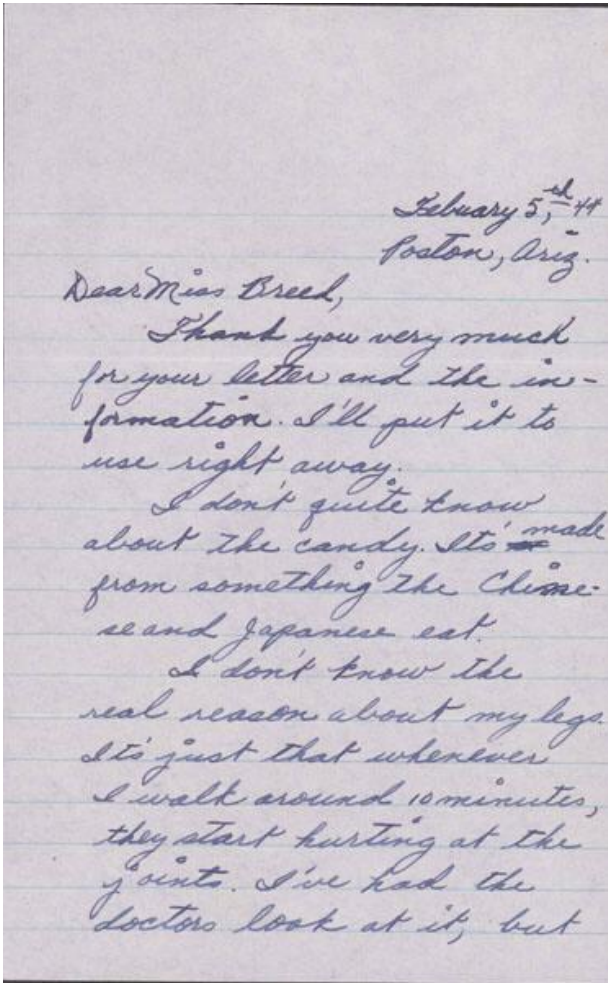 Febuary 5,th '44
Poston, Ariz.
Dear Miss Breed,
Thank you very much
for your letter and the in-
formation. I'll put it to
use right away.
I don't quite know
about the candy. Its' made
from something the Chine-
se and Japanese eat.
I don't know the
real reason about my legs.
Its' just that whenever
I walk around 10 minutes,
they start hurting at the
joints. I've had the
doctors look at it, but